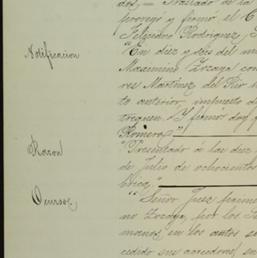 dos,= Traslado de la
proveyo y firmó el C.
Filiberto Rodriguez,
Notificacion
"En diez y seis del m
Maximino Orcaya con
res Martinez del Rio
to anterior, impuesto d
treguen. Y firmo doy f
Romero,"
Razon
"Presentado á las diez
de Julio de ochocientos
Ocurso,
"Señor Juez prime
no Orcaya, por los S
manos, en los autos se
cedido sus acreedores, an